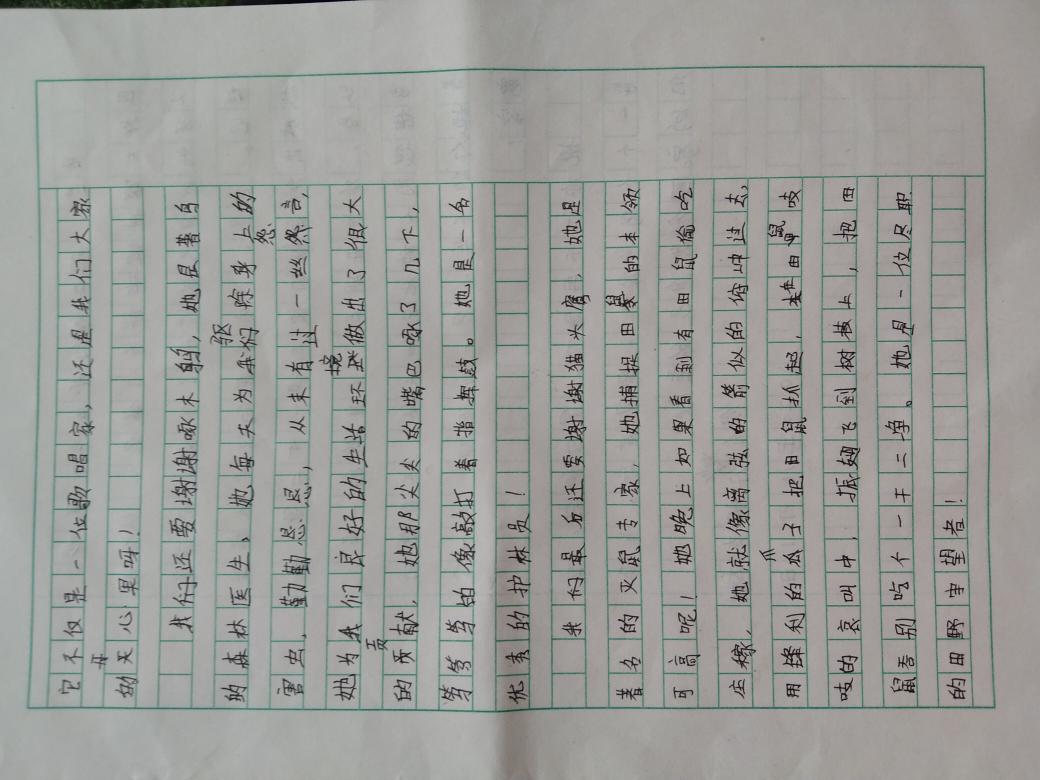 它不仅是一位歌唱家，还是我们大家
的开心果呀！
我们还要谢谢啄木鸟，她是著名
的森林医生，她每天为我们驱除身上的
害虫，勤勤恳恳，从未有过一丝怨言，
她为我们良好的生活环境做出了很大
的贡献，她那尖尖的嘴巴啄了几下，
笃笃笃的像敲打着指挥鼓。她是一名
优秀的护林员！
我们最后还要谢谢猫头鹰，她是
著名的灭鼠专家，她捕捉田鼠的本领
可高呢！她晚上如果看到有田鼠偷吃
庄稼，她就像离弦的箭似的俯冲过去，
用锋利的爪子把田鼠抓起，田鼠吱
吱的哀叫中，振翅飞到树枝上，把田
鼠吞别吃个一干二净。她是一位尽职
的田野守望者！